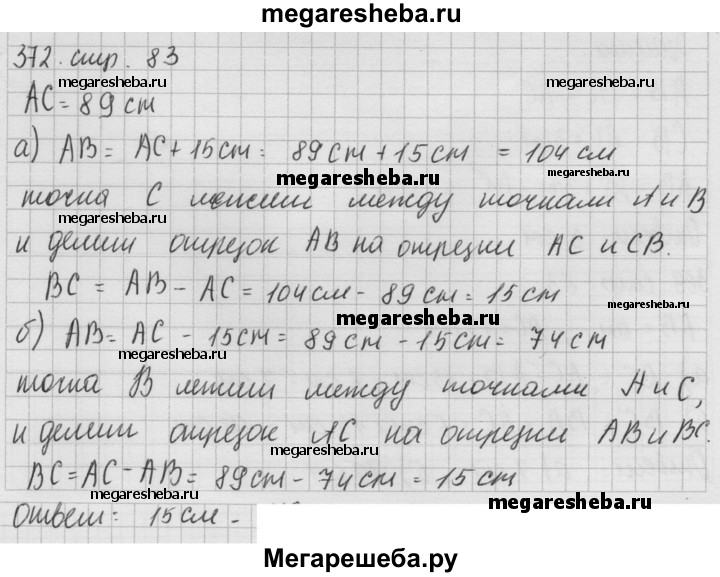 megaresheba.ru
372. стр. 83
megaresheba.ru megaresheba.ru
AC = 89 cm
а) AB = AC + 15 cm = 89 cm + 15 cm = 104 см
megaresheba.ru
точка C лежит между точками A и B
megaresheba.ru
и делит отрезок AB на отрезки AC и CB.
BC = AB - AC = 104 см - 89 cm = 15 cm
megaresheba.ru
megaresheba.ru
б) AB = AC - 15 cm = 89 cm - 15 cm = 74 cm
megaresheba.ru
точка B лежит между точками A и C,
и делит отрезок AC на отрезки AB и BC.
megaresheba.ru
BC = AC - AB = 89 cm - 74 cm = 15 cm
megaresheba.ru
megaresheba.ru
ответ: 15 см -
Мегарешеба.ру